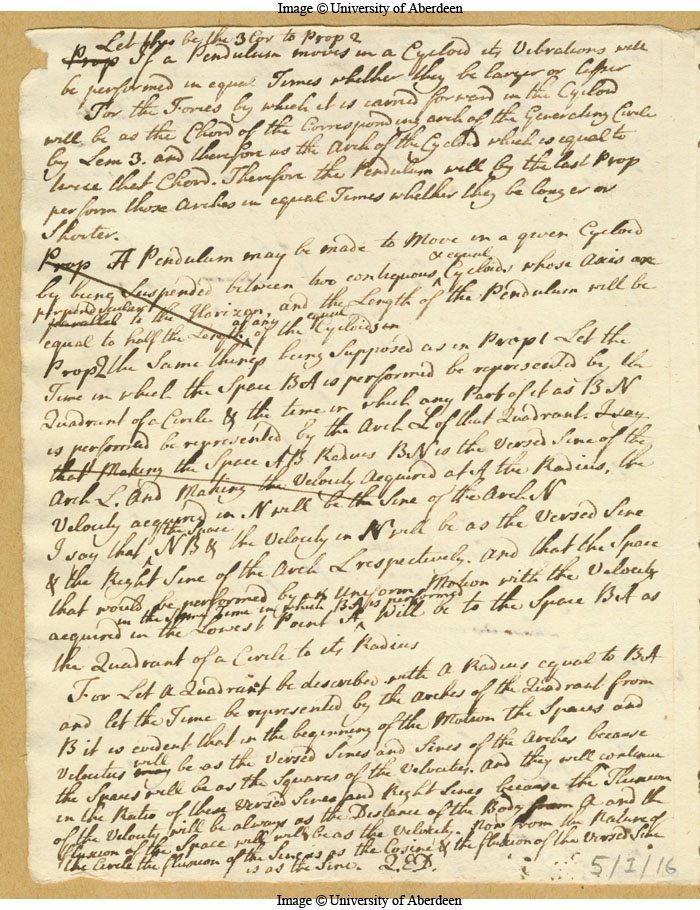 Image © University of Aberdeen
Let this be the 3 Cor to Prop 2
Prop If a Pendulum moves in a Cycloid its Vibrations will
be performed in equal Times whether they be larger or lesser
For the Forces by which it is carried forward in the Cycloid
will be as the Chord of the Corresponding arch of the Generating Circle
by Lem 3. and therefore as the Arch of the Cycloid which is equal to
twice that Chord. Therefore the Pendulum will by the last Prop
perform those Arches in equal Times whether they be longer or
Shorter.
Prop A Pendulum may be made to Move in a given Cycloid
& equal
by being Suspended between two contiguous Cycloids whose Axis are
perpendicular
parallel to the Horizon, and the Length of the Pendulum will be
of any equal
equal to half the Length of the Cycloids in
Prop 2 the Same things being Supposed as in Prop 1 Let the
Time in which the Space BA is performed be represented by the
Quadrant of a Circle & the time in which any Part of it as BN
is performed be represented by the Arch L of that Quadrant. I say
that Making the Space AB Radius BN is the Versed Sine of the
Arch L. And Making the Velocity Acquired at A the Radius, the
Velocity acquired in N will be the Sine of the Arch N
the Space
I say that NB & the Velocity in N will be as the Versed Sine
& the Right Sine of the Arch L respectively. And that the Space
that would be performed by an Uniform Motion with the Velocity
in the same time in which BA is performed
acquired in the Lowest Point A Will be to the Space BA as
the Quadrant of a Circle to its Radius
For Let A Quadrant be described with A Radius equal to BA
and let the Time be represented by the Arches of the Quadrant from
B it is evident that in the beginning of the Motion the Spaces and
Velocities will may be as the Versed Sines and Sines of the Arches because
the Spaces will be as the Squares of the Velocities. And they will continue
in the Ratio of these Versed Sines and Right Sines because the Fluxion
of the Velocity will be always as the Distance of the Body from A and the
fluxion of the Space will be as the Velocity. Now from the Nature of
the Circle the fluxion of the Sine is as the Cosine & the fluxion of the Versed Sine
is as the Sine. Q.E.D.
5/I/16
Image © University of Aberdeen